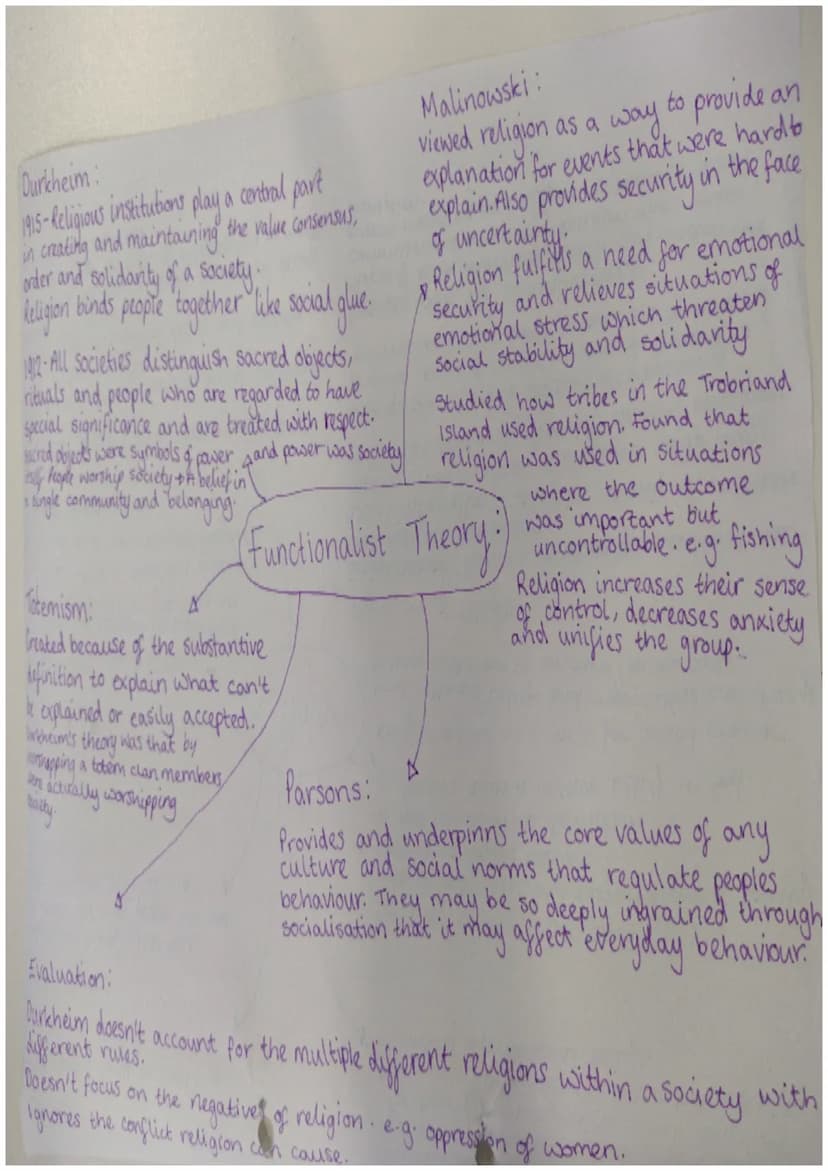 Durkheim:
1915-Religious institutions play a central part
in creating and maintaining the value consensus,
order and solidarity of a society.
Religion binds people together like social glue.
1912-All societies distinguish sacred objects,
rituals and people who are regarded to have
special significance and are treated with respect.
sacred objects were symbols of power and power was society
itself. People worship society → A belief in
a single community and belonging.
Malinowski:
viewed religion as a way to provide an
explanation for events that were hard to
explain. Also provides security in the face
of uncertainty.
Religion fulfills a need for emotional
security and relieves situations of
emotional stress which threaten
social stability and solidarity
Studied how tribes in the Trobriand
island used religion. Found that
religion was used in situations
where the outcome
was important but
uncontrollable. e.g. fishing
Religion increases their sense
of control, decreases anxiety
and unifies the group.
Functionalist Theory:
Totemism:
Created because of the substantive
definition to explain what can't
be explained or easily accepted.
Durkheim's theory was that by
worshipping a totem clan members
were actually worshipping
society.
Parsons:
Provides and underpinns the core values of any
culture and social norms that regulate peoples
behaviour. They may be so deeply ingrained through
socialisation that it may affect everyday behaviour.
Evaluation:
Durkheim doesn't account for the multiple different religions within a society with
different rules.
Doesn't focus on the negatives of religion. e.g. oppression of women.
Ignores the conflict religion can cause.